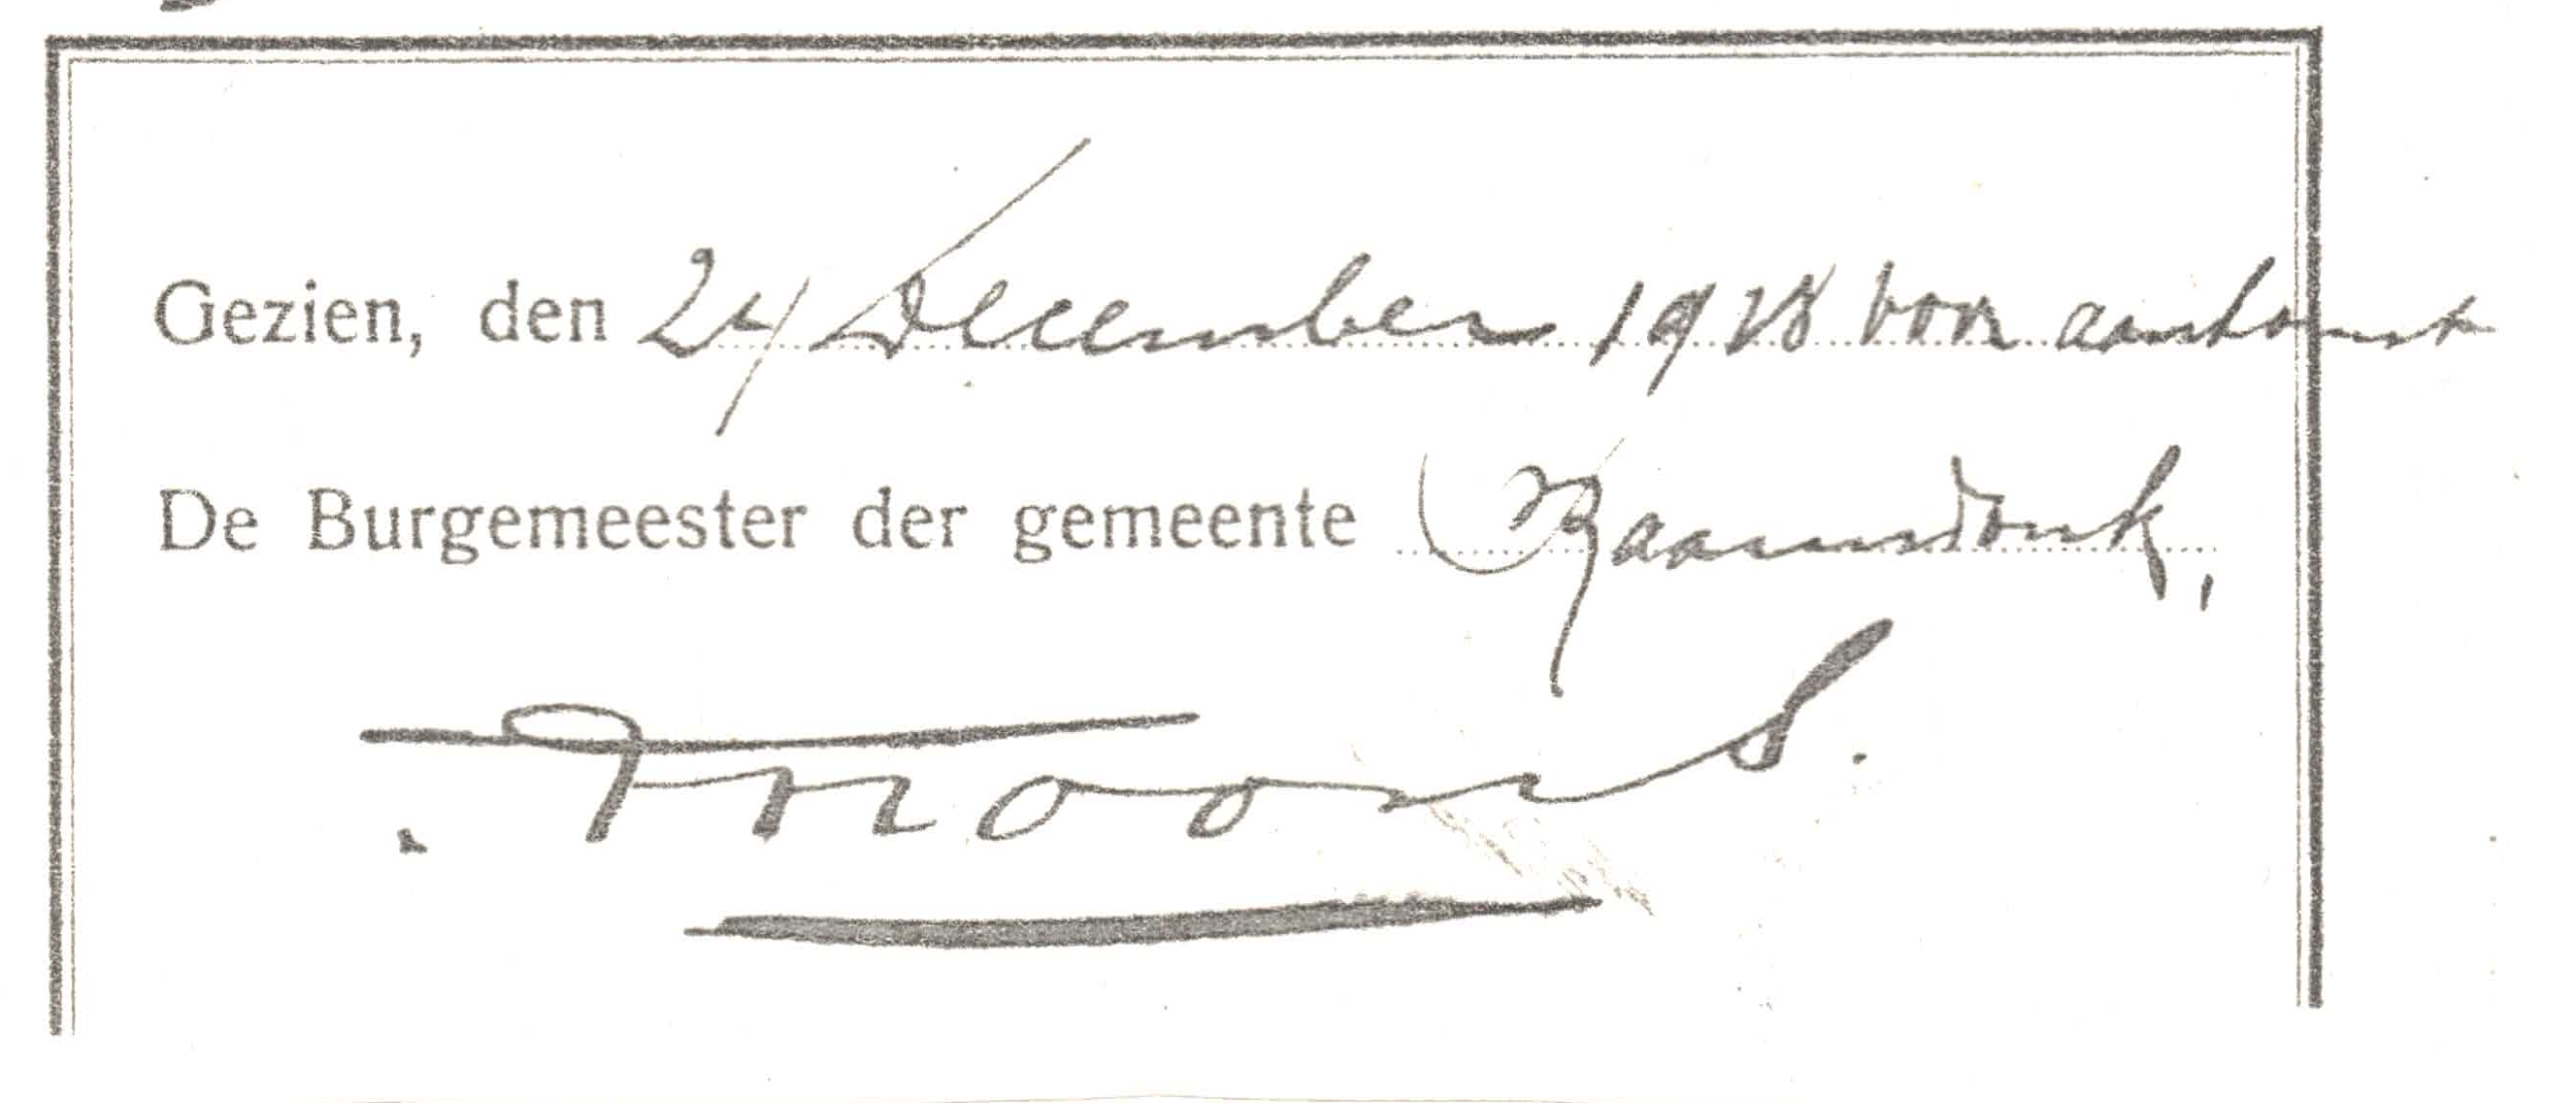 Gezien, den 24 December 1928 voor aankomst
De Burgemeester der gemeente Raamsdonk,